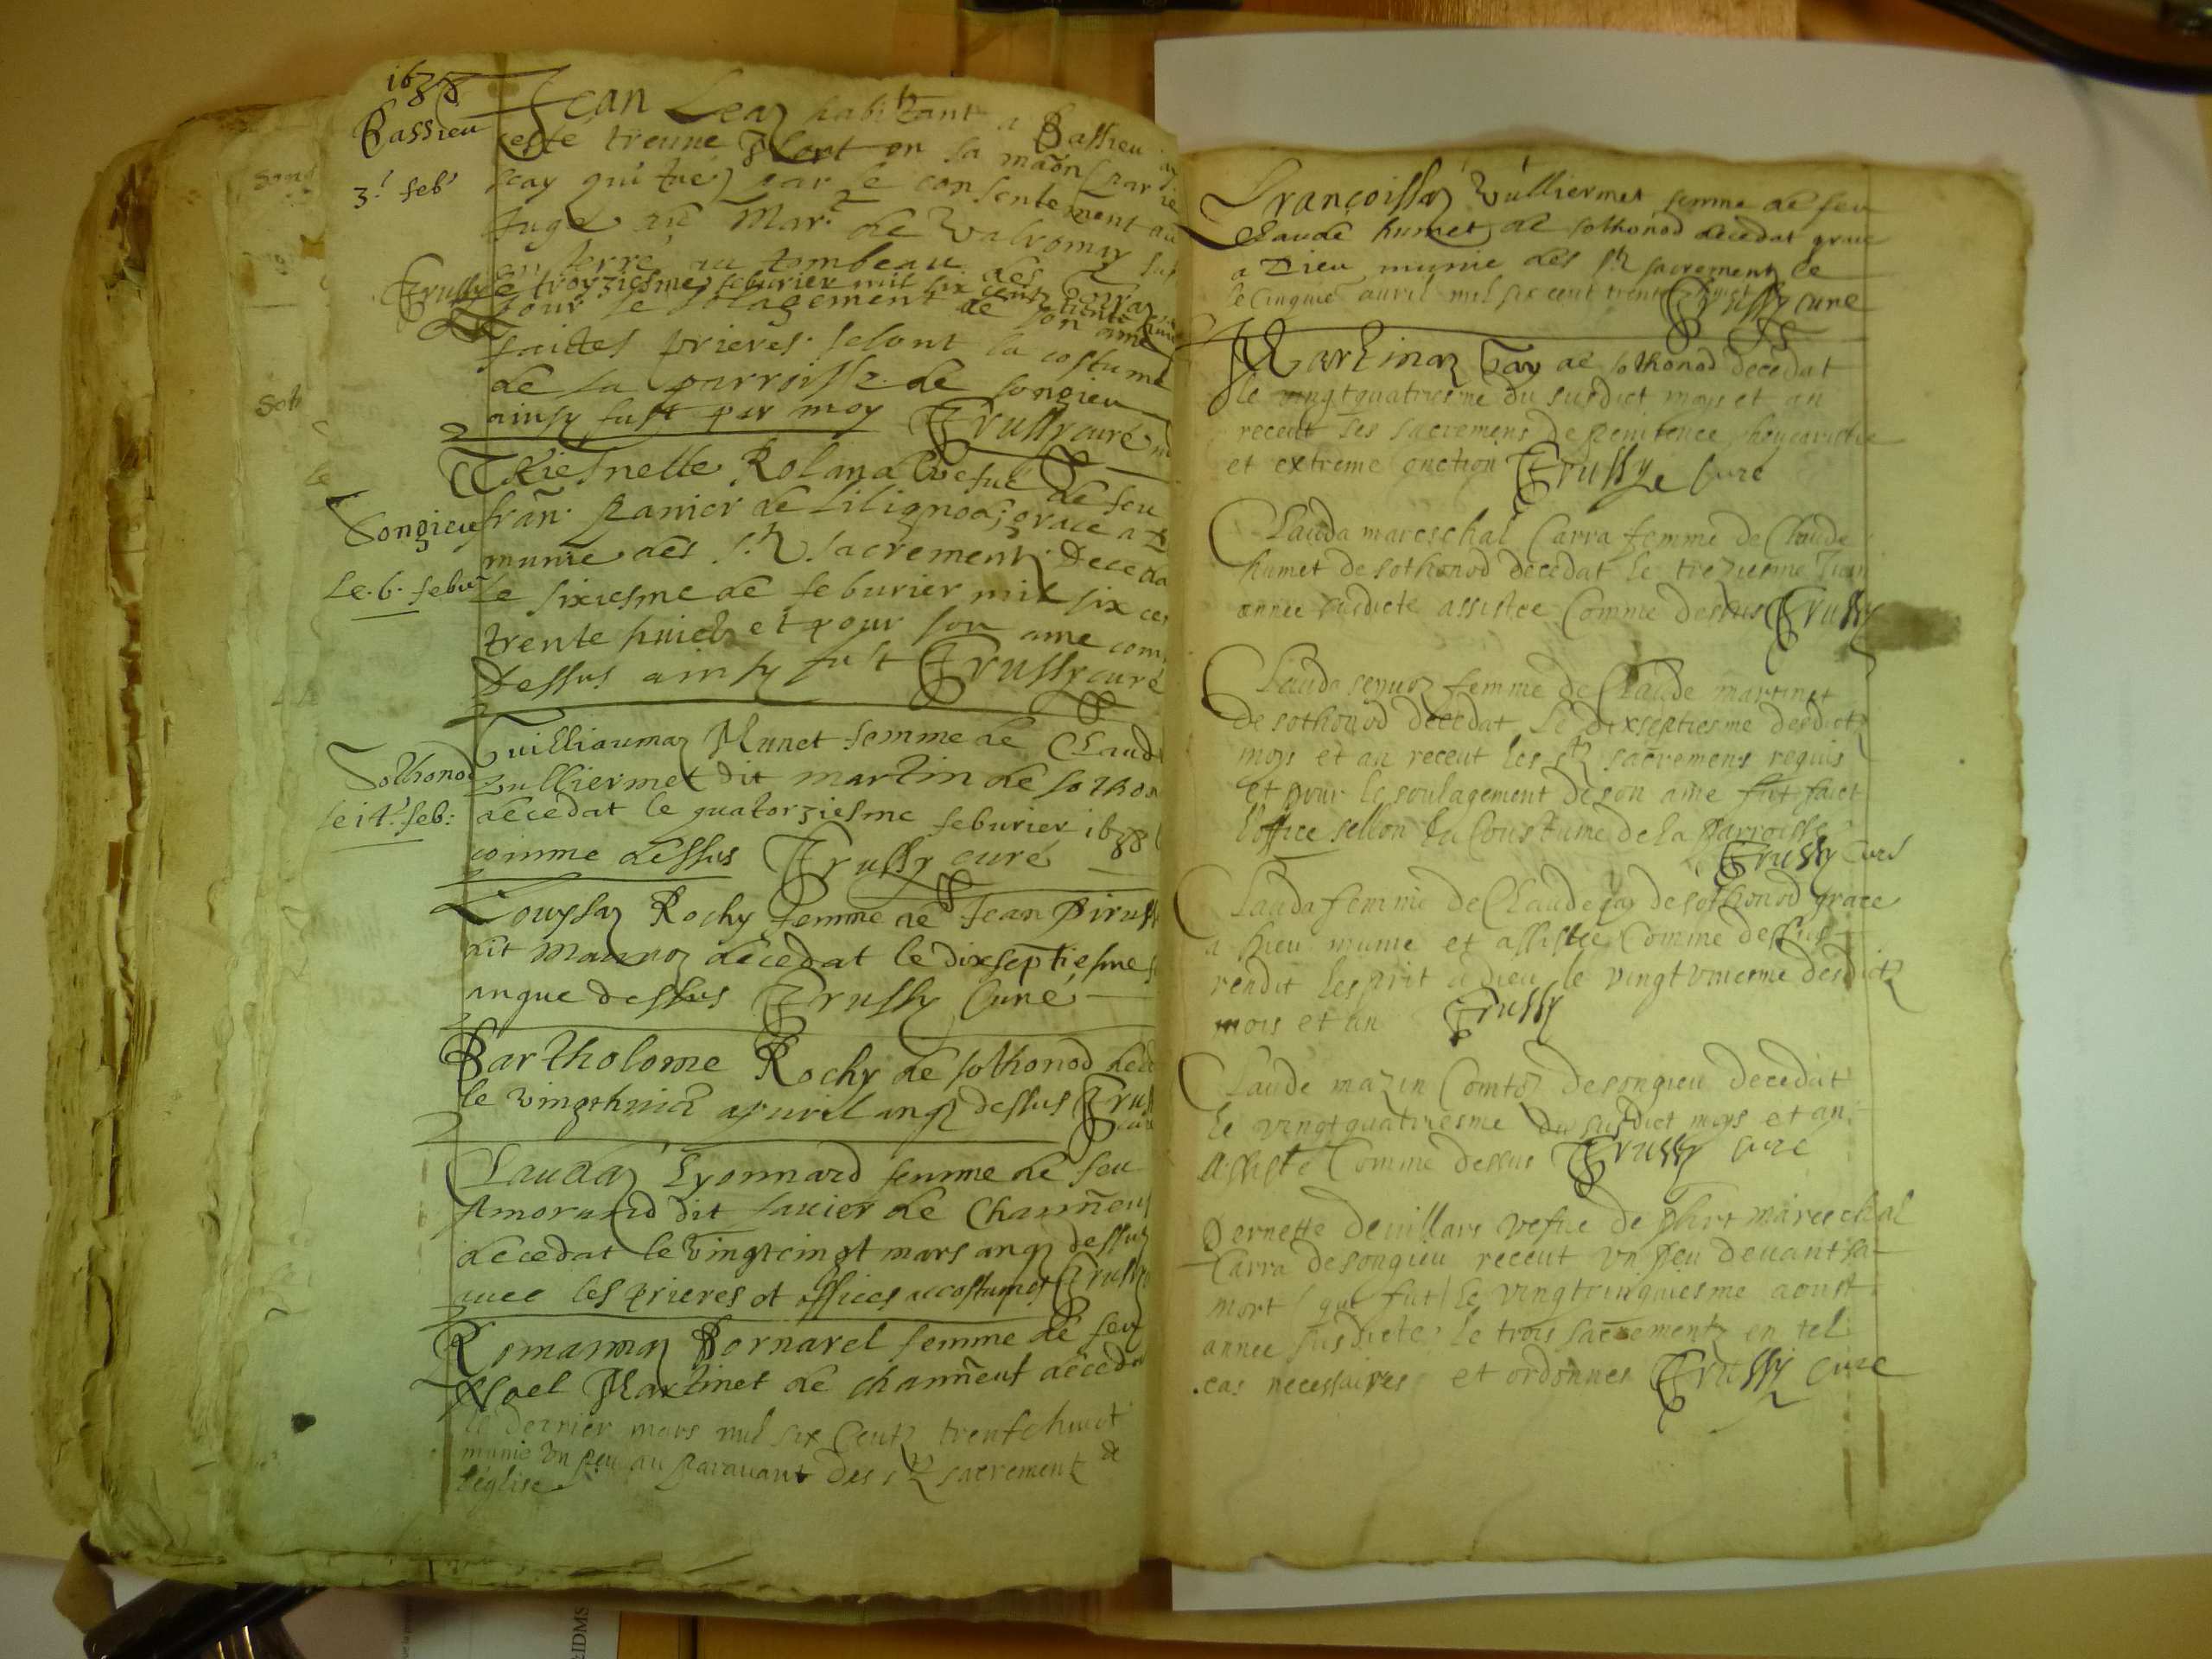 1638
Bassieu
3.e feb.
Jean Leaz habitant a Bassieu
esté treuué Mort en sa maōn par ie
scay qui tué par le consentement du
Juge du Mar. de Valromay
enterré au tombeau des
Trussy le troyziesme feburier mil six centz trente huict
pour le solagement de son ame
faictes prieres selont la costume
de la parroisse de songieu
ainsy fust par moy Trussy curé
Songieu
Le .6. febu
Thiesnette Roland vefue de feu
fran. Panier de Lilignod; grace a
munie des s.tz sacrementz Deceda
le sixiesme de feburier mil six ce
trente huict et pour son ame com
Dessus ainsy fust Trussy curé
Sothonod
le 14.e feb:
Guilliaumaz Munet femme de Claud
Vulliermet dit martin de sothon
decedat le quatorziesme feburier 1638
comme dessus Trussy curé
Louysaz Rochy femme de Jean Piruss
dit decedat le dixseptiesme
anque dessus Trussy Curé
Bartholome Rochy de sothonod dece
le vingthuict apuril anq dessus Trus
cur
Claudaz Lyonnard femme de feu
Amorand dit sauier de Channeuf
decedat le vingtcinqt mars anq dessus
auec les prieres et offices accostumes Trussy
Romanaz Bornarel femme de feu
Noel Martinet de channeuf deceda
le dernier mars mil six Centz trentehuict
munie un peu au parauant des s.tz sacrementz de
l'eglise
Françoissaz Vulliermet femme de feu
Claude humet de sothonod decedat grace
a Dieu munie des s.tz sacrementz le
le Cinquie auril mil six cent trente huict Trussy curé
Martinaz Jay de sothonod decedat
le vingtquatriesme du susdict moys et an
receut les sacremens de penitence, heucaristie
et extreme onction Trussy Curé
Clauda mareschal Carra femme de Claude
humet de sothonod decedat le treziesme Juin
annee susdicte assistee Comme dessus Trussy
Clauda femme de Claude martinet
de sothonod decedat le dixseptiesme desdict
moys et an receut les s.tz sacremens requis
et pour le soulagement de son ame fut faict
l'office sellon la Coustume de la parroisse
Trussy Curé
Clauda femme de Claude Jay de sothonod grace
a Dieu munie et assistee Comme dessus
rendit lesprit a Dieu le vingtuniesme desdictz
mois et an Trussy
Claude mazin Comtoz de songieu decedat
le vingtquatriesme du susdict moys et an
Assisté Comme dessus Trussy Curé
Pernette deuillars vefue de mareschal
Carra de songieu receut vn peu deuant sa
mort qui fut le vingtcinquiesme aoust
annee susdicte le trois sacrementz en tel
cas necessaires et ordonnes Trussy Curé
EIDMS